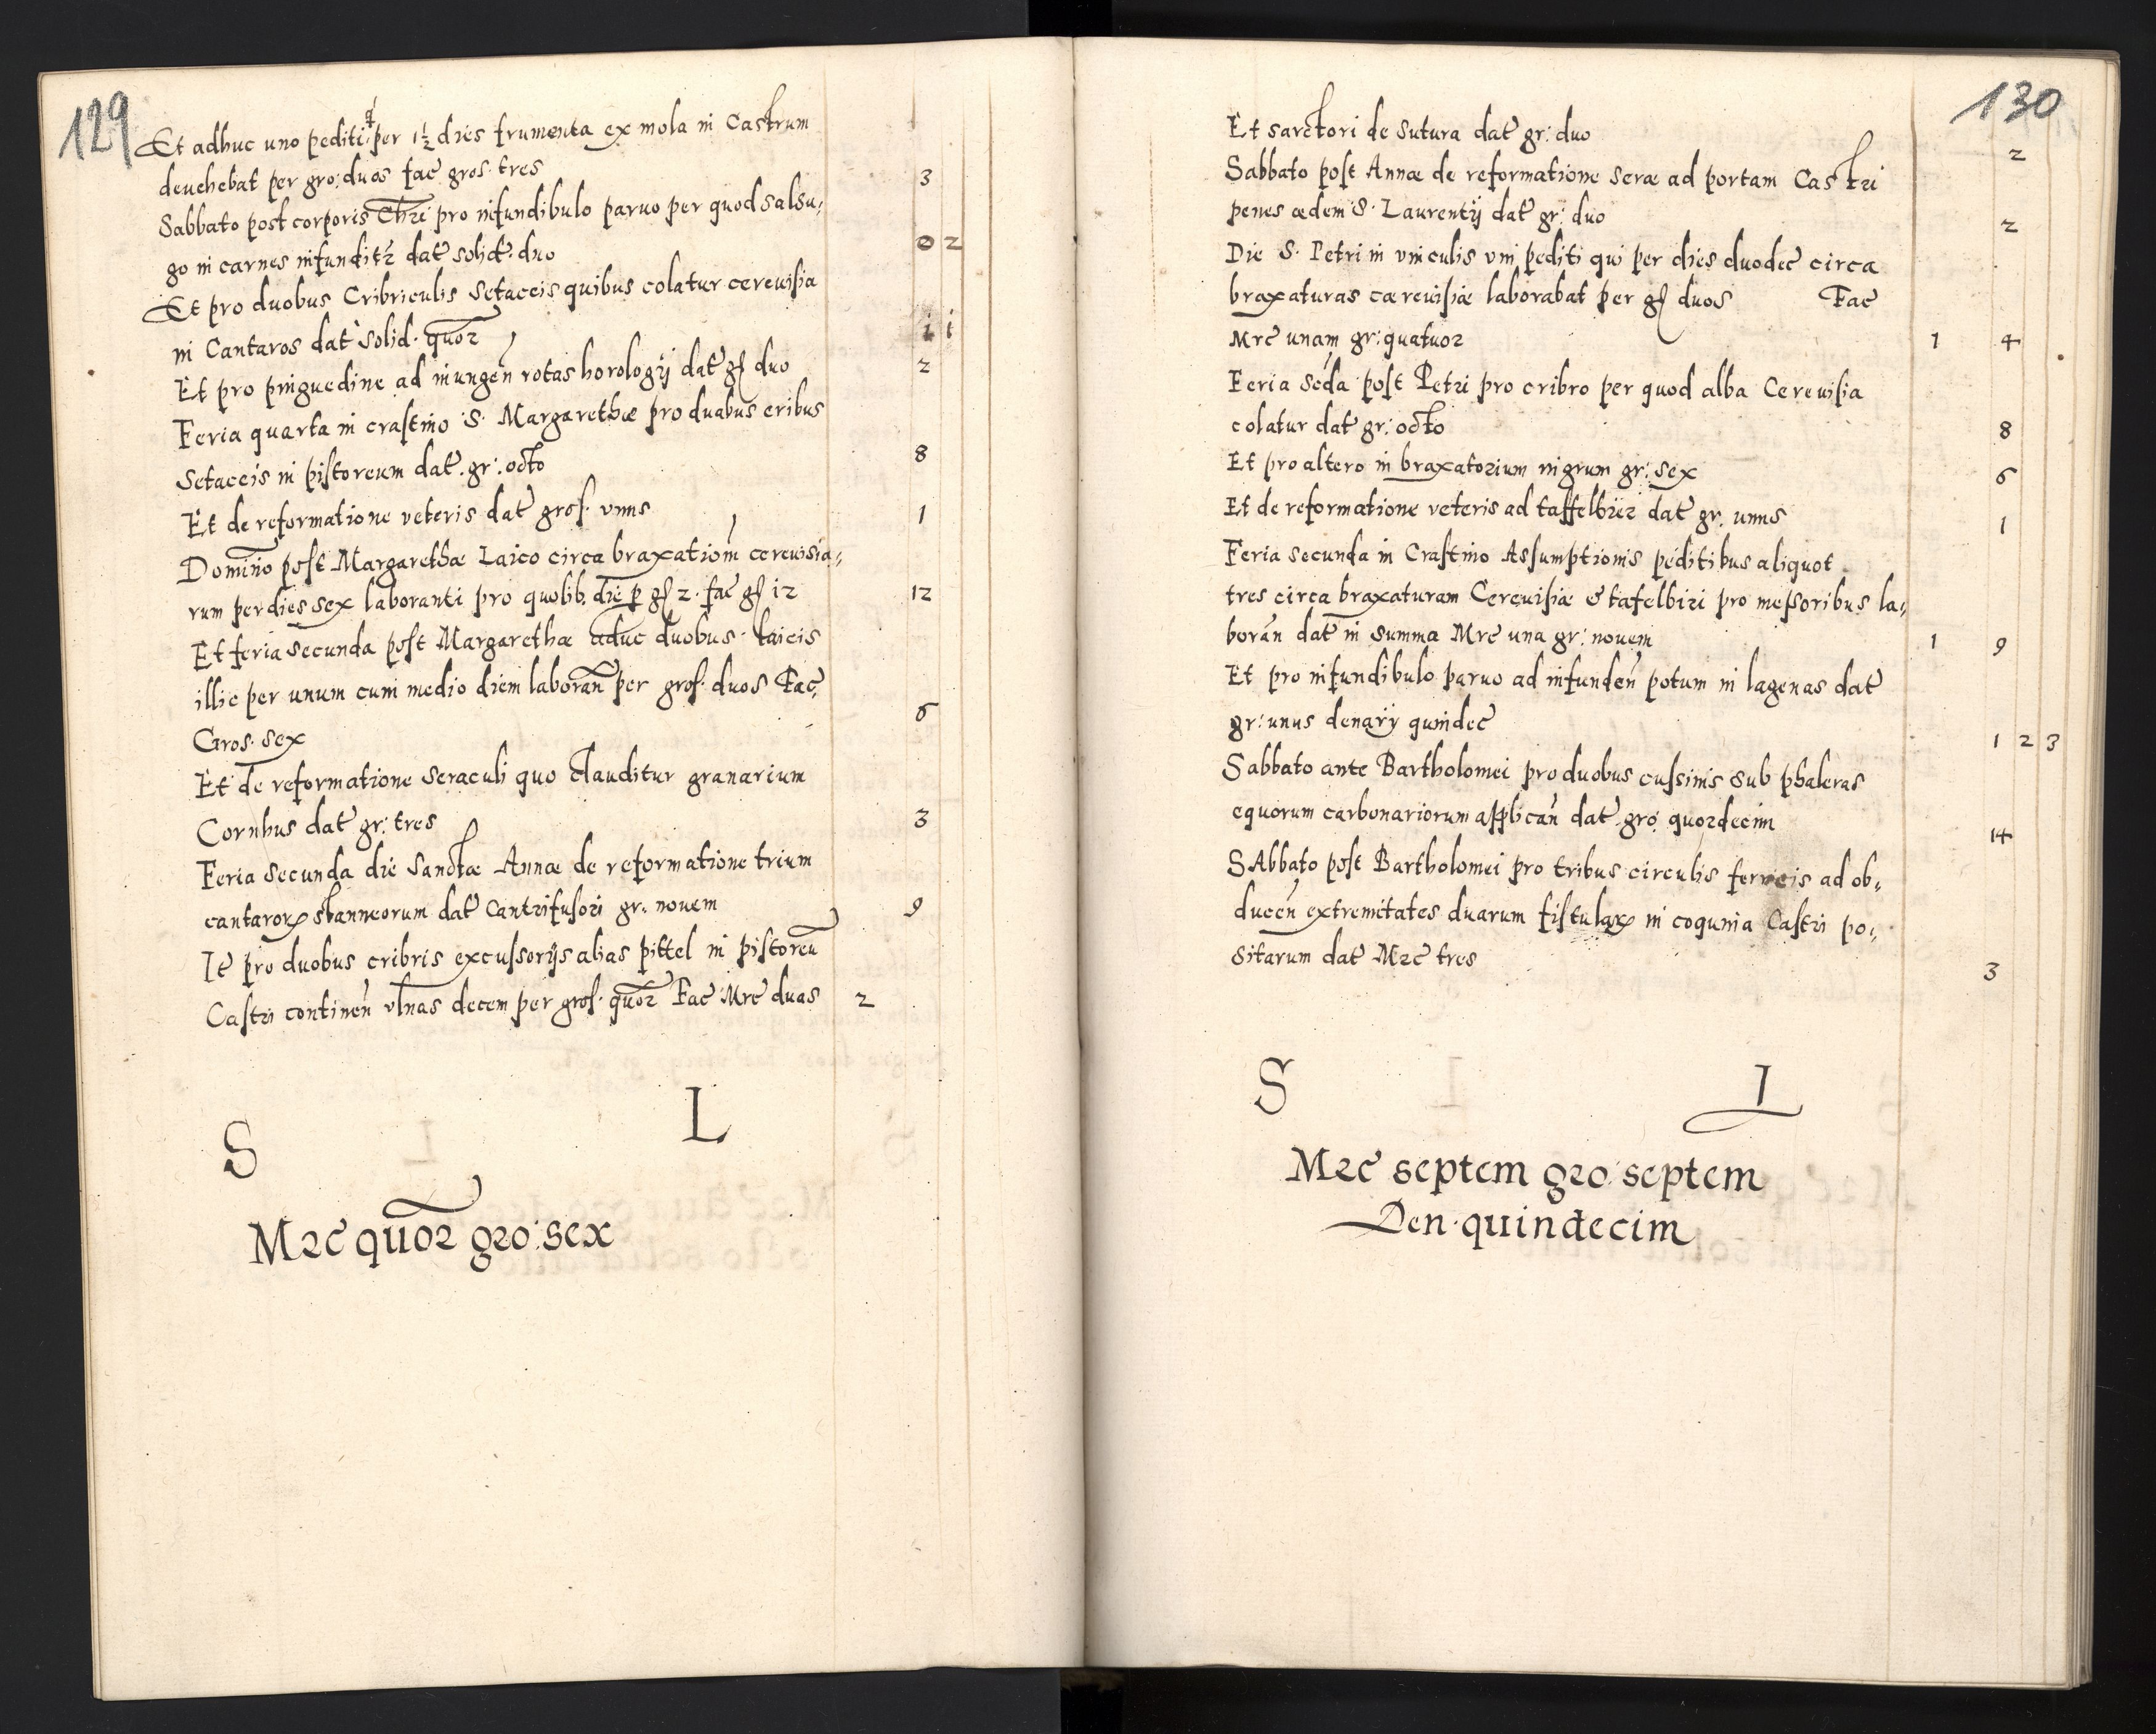 129
Et adhuc uno pediti q̃ per 1½ dies frumenta ex mola in Castrum
deuehebat per gro: duos fac̃ gros. tres 3
Sabbato post corporis Chr̃i pro infundibulo paruo per quod salsu-
go in carnes infundit̃ dat̃ solid̃. duo 0 2
Et pro duobus Cribriculis setaceis quibus colatur cereuisia
in Cantaros dat̃ solid. quõr 1 1
Et pro pinguedine ad inungen̄ rotas horologij dat̃ gſ duo 2
Feria quarta in crastino S. Margarethæ pro duabus cribus
setaceis in pistoreum dat̃. gr: octo 8
Et de reformatione veteris dat̃ gros. vnns 1
Domin̄o post Margarethæ Laico circa braxation̄ cereuisia-
rum per dies sex laboranti pro quolib. die p̱ gſ 2. fac̃ gſ 12 12
Et feria secunda post Margarethæ aduc duobus laicis
illic per unum cum medio diem laboran̄ per gros. duos Fac̃
Gros. sex 6
Et de reformatione seraculi quo clauditur granarium
Cornhus dat̃ gr: tres 3
Feria secunda die Sanctæ Annæ de reformatione trium
cantaroꝝ stanneorum dat̃ Cantrifusori gr. nouem 9
It̃ pro duobus cribris excussorijs alias pittel in pistoreū
Castri continen̄ vlnas decem per gros. quõr Fac̃ Mrc̃ duas 2
S L
Mrc̃ quõr gro: sex
130
Et sarctori de sutura dat̃ gr: duo 2
Sabbato post Annæ de reformatione seræ ad portam Castri
penes ædem S. Laurentij dat̃ gr: duo 2
Die S. Petri in vinculis vni pediti qui per dies duodec̃ circa
braxaturas cæreuisiæ laborabat per gſ duos Fac̃
Mrc̃ unam gr: quatuor 1 4
Feria scd̃a post Petri pro cribro per quod alba Cereuisia
colatur dat̃ gr: octo 8
Et pro altero in braxatorium nigrum gr: sex 6
Et de reformatione veteris ad taffelbier dat̃ gr. unns 1
Feria secunda in Crastino Assumptionis peditibus aliquot
tres circa braxaturam Cereuisiæ & tafelbiri pro messoribus la-
boran̄ dat̃ in summa Mrc̃ una gr: nouem 1 9
Et pro infundibulo paruo ad infunden̄ potum in lagenas dat̃
gr: unus denarij quindec̃ 1 2 3
Sabbato ante Bartholomei pro duobus cussinis sub phaleras
equorum carbonariorum applican̄ dat̃ gro: quordecim 14
SAbbato post Bartholomei pro tribus circulis ferreis ad ob-
ducen̄ extremitates duarum fistulaꝝ in coquina Castri po-
sitarum dat̃ Mrc̃ tres 3
S L
Mrc̃ septem gro: septem
Den. quindecim